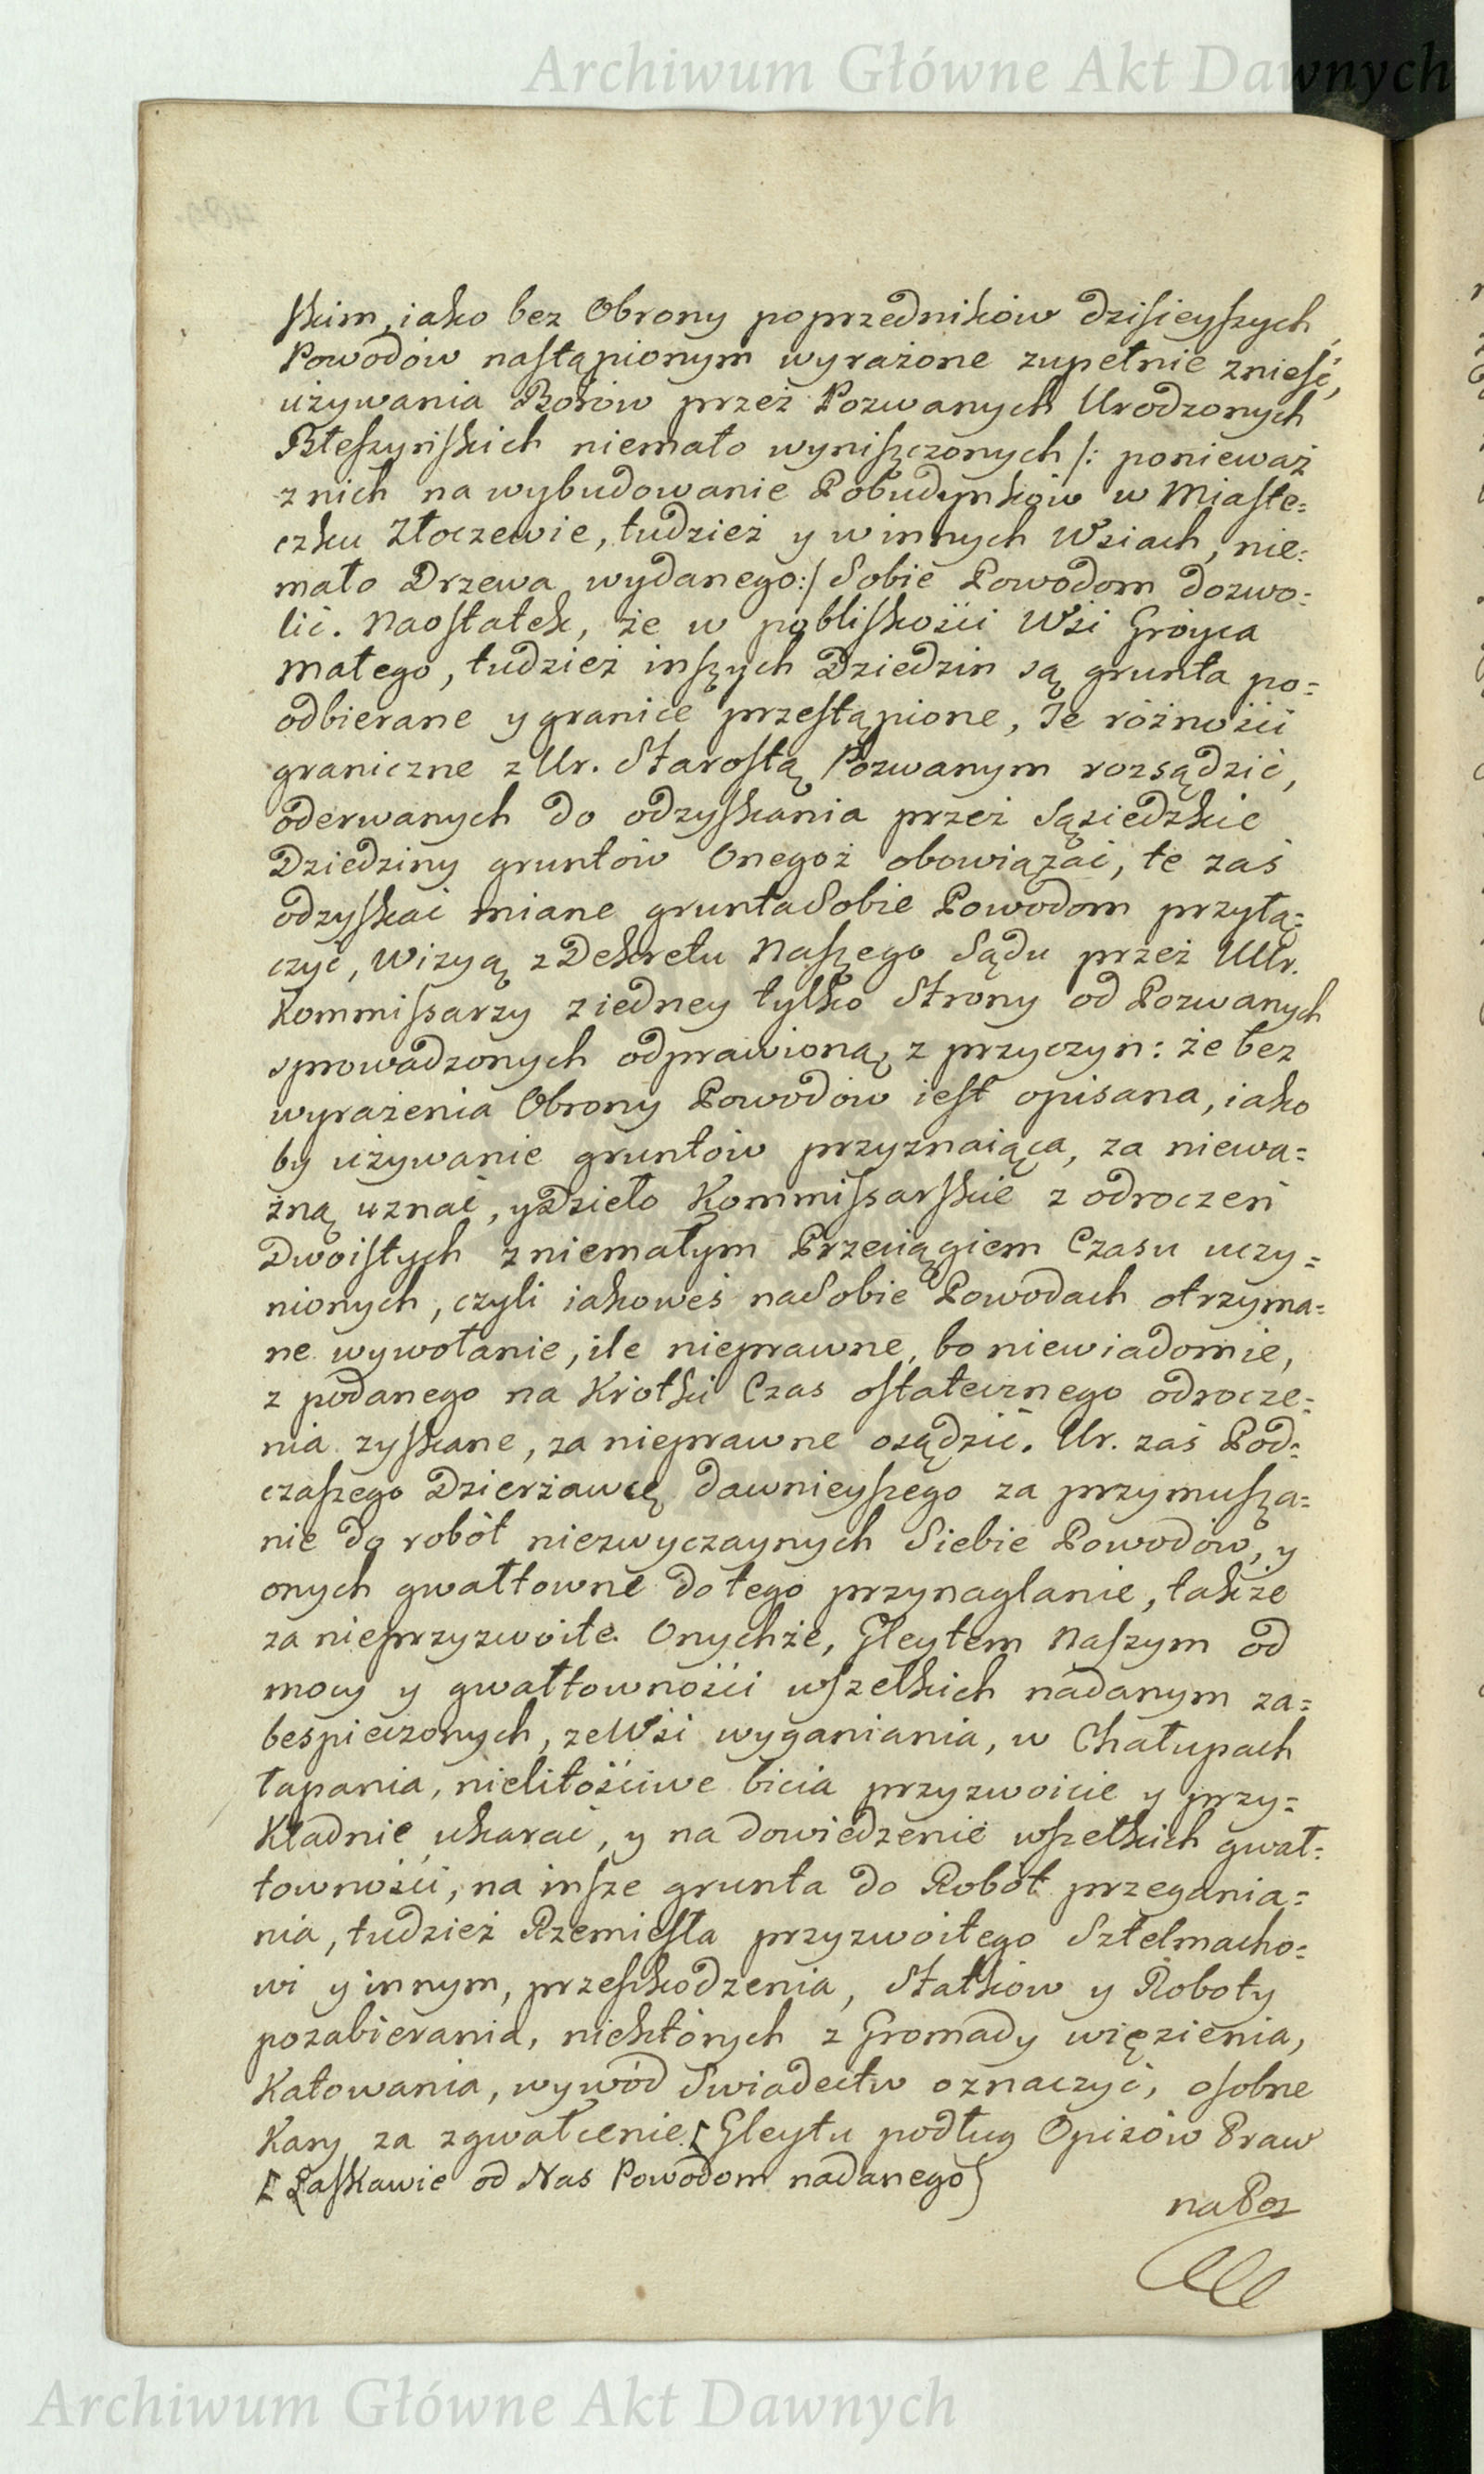 Archiwum Główne Akt Dawnych
skim, iako bez Obrony poprzedników dzisieyszych
Powodów nastąpionym wyrażone zupełnie znieść,
używania Borów przez Pozwanych Urodzonych
Błeszyńskich niemało wyniszczonych /: ponieważ
z nich na wybudowanie Pobudynków w Miaste=
czku Złoczewie, tudzież y winnych Wsiach, nie=
mało Drzewa wydanego :/ Sobie Powodom dozwo=
lić. Naostatek, że w pobliskości Wśi Gróyca
małego, tudzież inszych Dziedzin są grunta po=
odbierane y granice przestąpione, Te różności
graniczne z Ur. Starostą Pozwanym rozsądzić,
oderwanych do odzyskania przez Sąsiedzkie
Dziedziny gruntów Onegoż obowiązać, te zaś
odzyskać miane grunta Sobie Powodom przyłą=
czyć, Wizyą z Dekretu Naszego Sądu przez UUr.
Kommissarzy z iedney tylko Strony od Pozwanych
sprowadzonych odprawioną, z przyczyn: że bez
wyrażenia Obrony Powodów iest opisana, iako
by używanie gruntów przyznaiąca, za niewa=
żną uznać, y Dzieło Kommissarskie z odroczeń
Dwoistych z niemałym Przeciągiem Czasu uczy=
nionych, czyli iakoweś na Sobie Powodach otrzyma=
ne wywołanie, ile nieprawne, bo niewiadomie,
z podanego na Krótki Czas ostatecznego odrocze=
nia zyskane, za nieprawne osądzić. Ur. zaś Pod=
czaszego Dzierżawcę dawnieyszego za przymusza=
nie do robót niezwyczaynych Siebie Powodów, y
onych gwałtowne do tego przynaglanie, także
za nieprzyzwoite Onychże, Gleytem Naszym od
mocy y gwałtowności wszelkich nadanym za=
bespieczonych, ze Wśi wyganiania, w Chałupach
łapania, nielitościwe bicia przyzwoicie y przy=
kładnie ukarać, y na dowiedzenie wszelkich gwał=
towności, na insze grunta do Robót przegania=
nia, tudzież Rzemiesła przyzwoitego Sztelmacho=
wi y innym, przeszkodzenia, Statków y Roboty
pozabierania, niektórych z Gromady więzienia,
Katowania, wywód Swiadectw oznaczyć, osobne
Kary za zgwałcenie [ Gleytu podług Opisów Praw
[ Łaskawie od Nas Powodom nadanego }
na Poz
Archiwum Główne Akt Dawnych